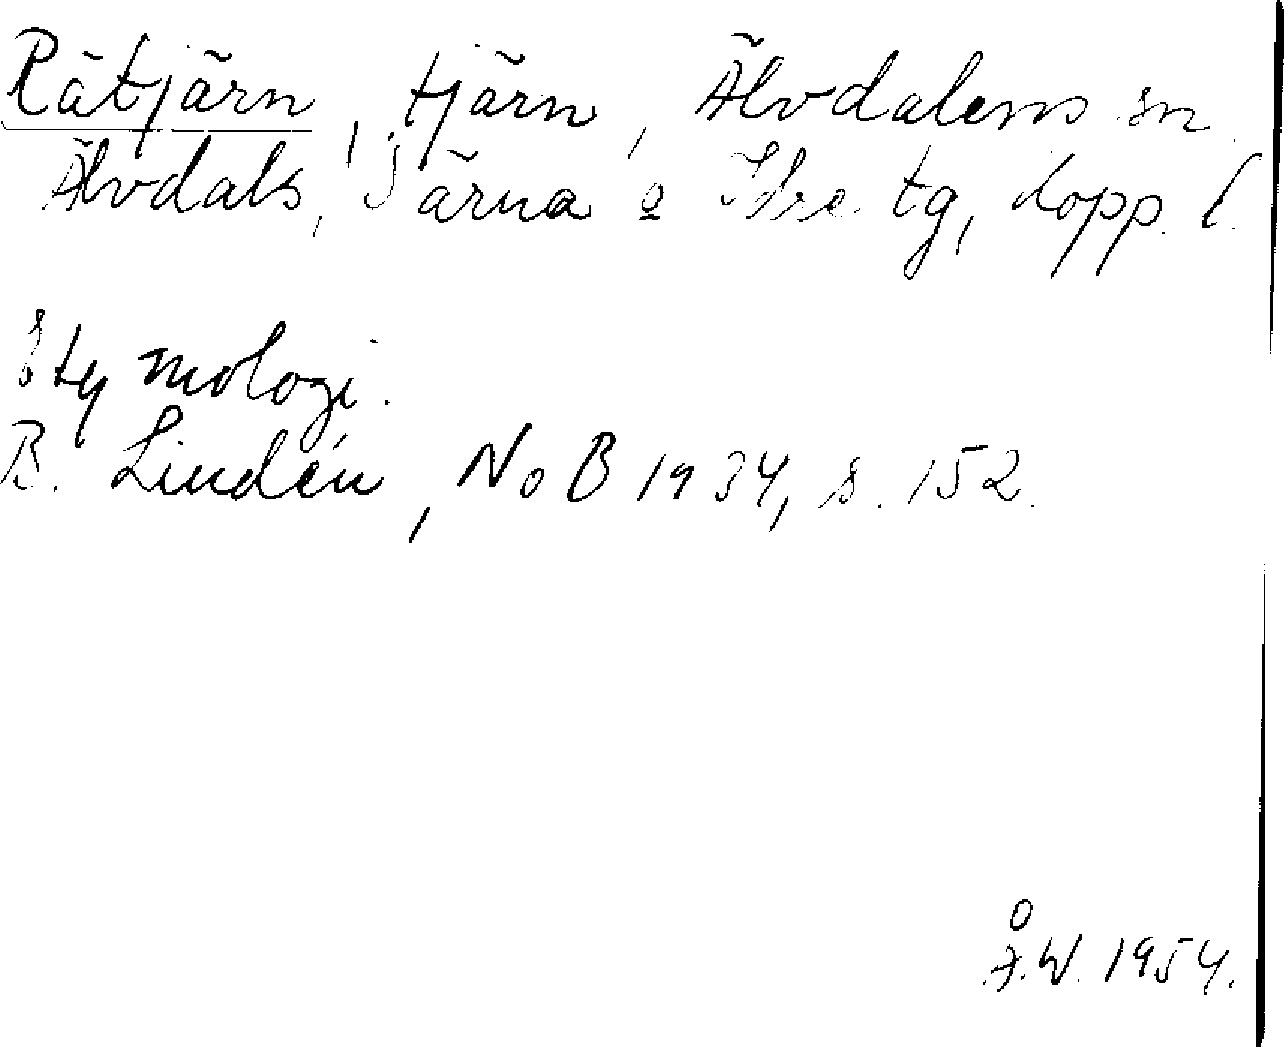 Rätjärn, tjärn, Älvdalens sn
Älvdals, Järna o Idre tg, Kopp. l.
Etymologi.
B. Lindén, NoB 1934, s. 152.
Å.W. 1954.